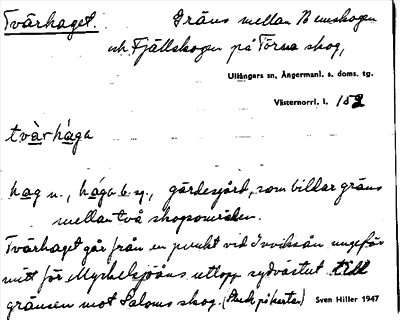 Tvärhaget. Gräns mellan Bennskogen
och Fjällskogen på Törna skog,
Ullångers sn, Ångermanl. s. doms. tg.
Västernorrl. l. 152
tvàrhága
hag n., hága b. sg., gärdesgård, som bildar gräns
mellan två skogsområden.
Tvärhaget går från en punkt vid Invikssån ungefär
mitt för Myckelsjöåns utlopp sydvästut till
gränsen mot Saloms skog. (Streck på kartan)
Sven Hiller 1947